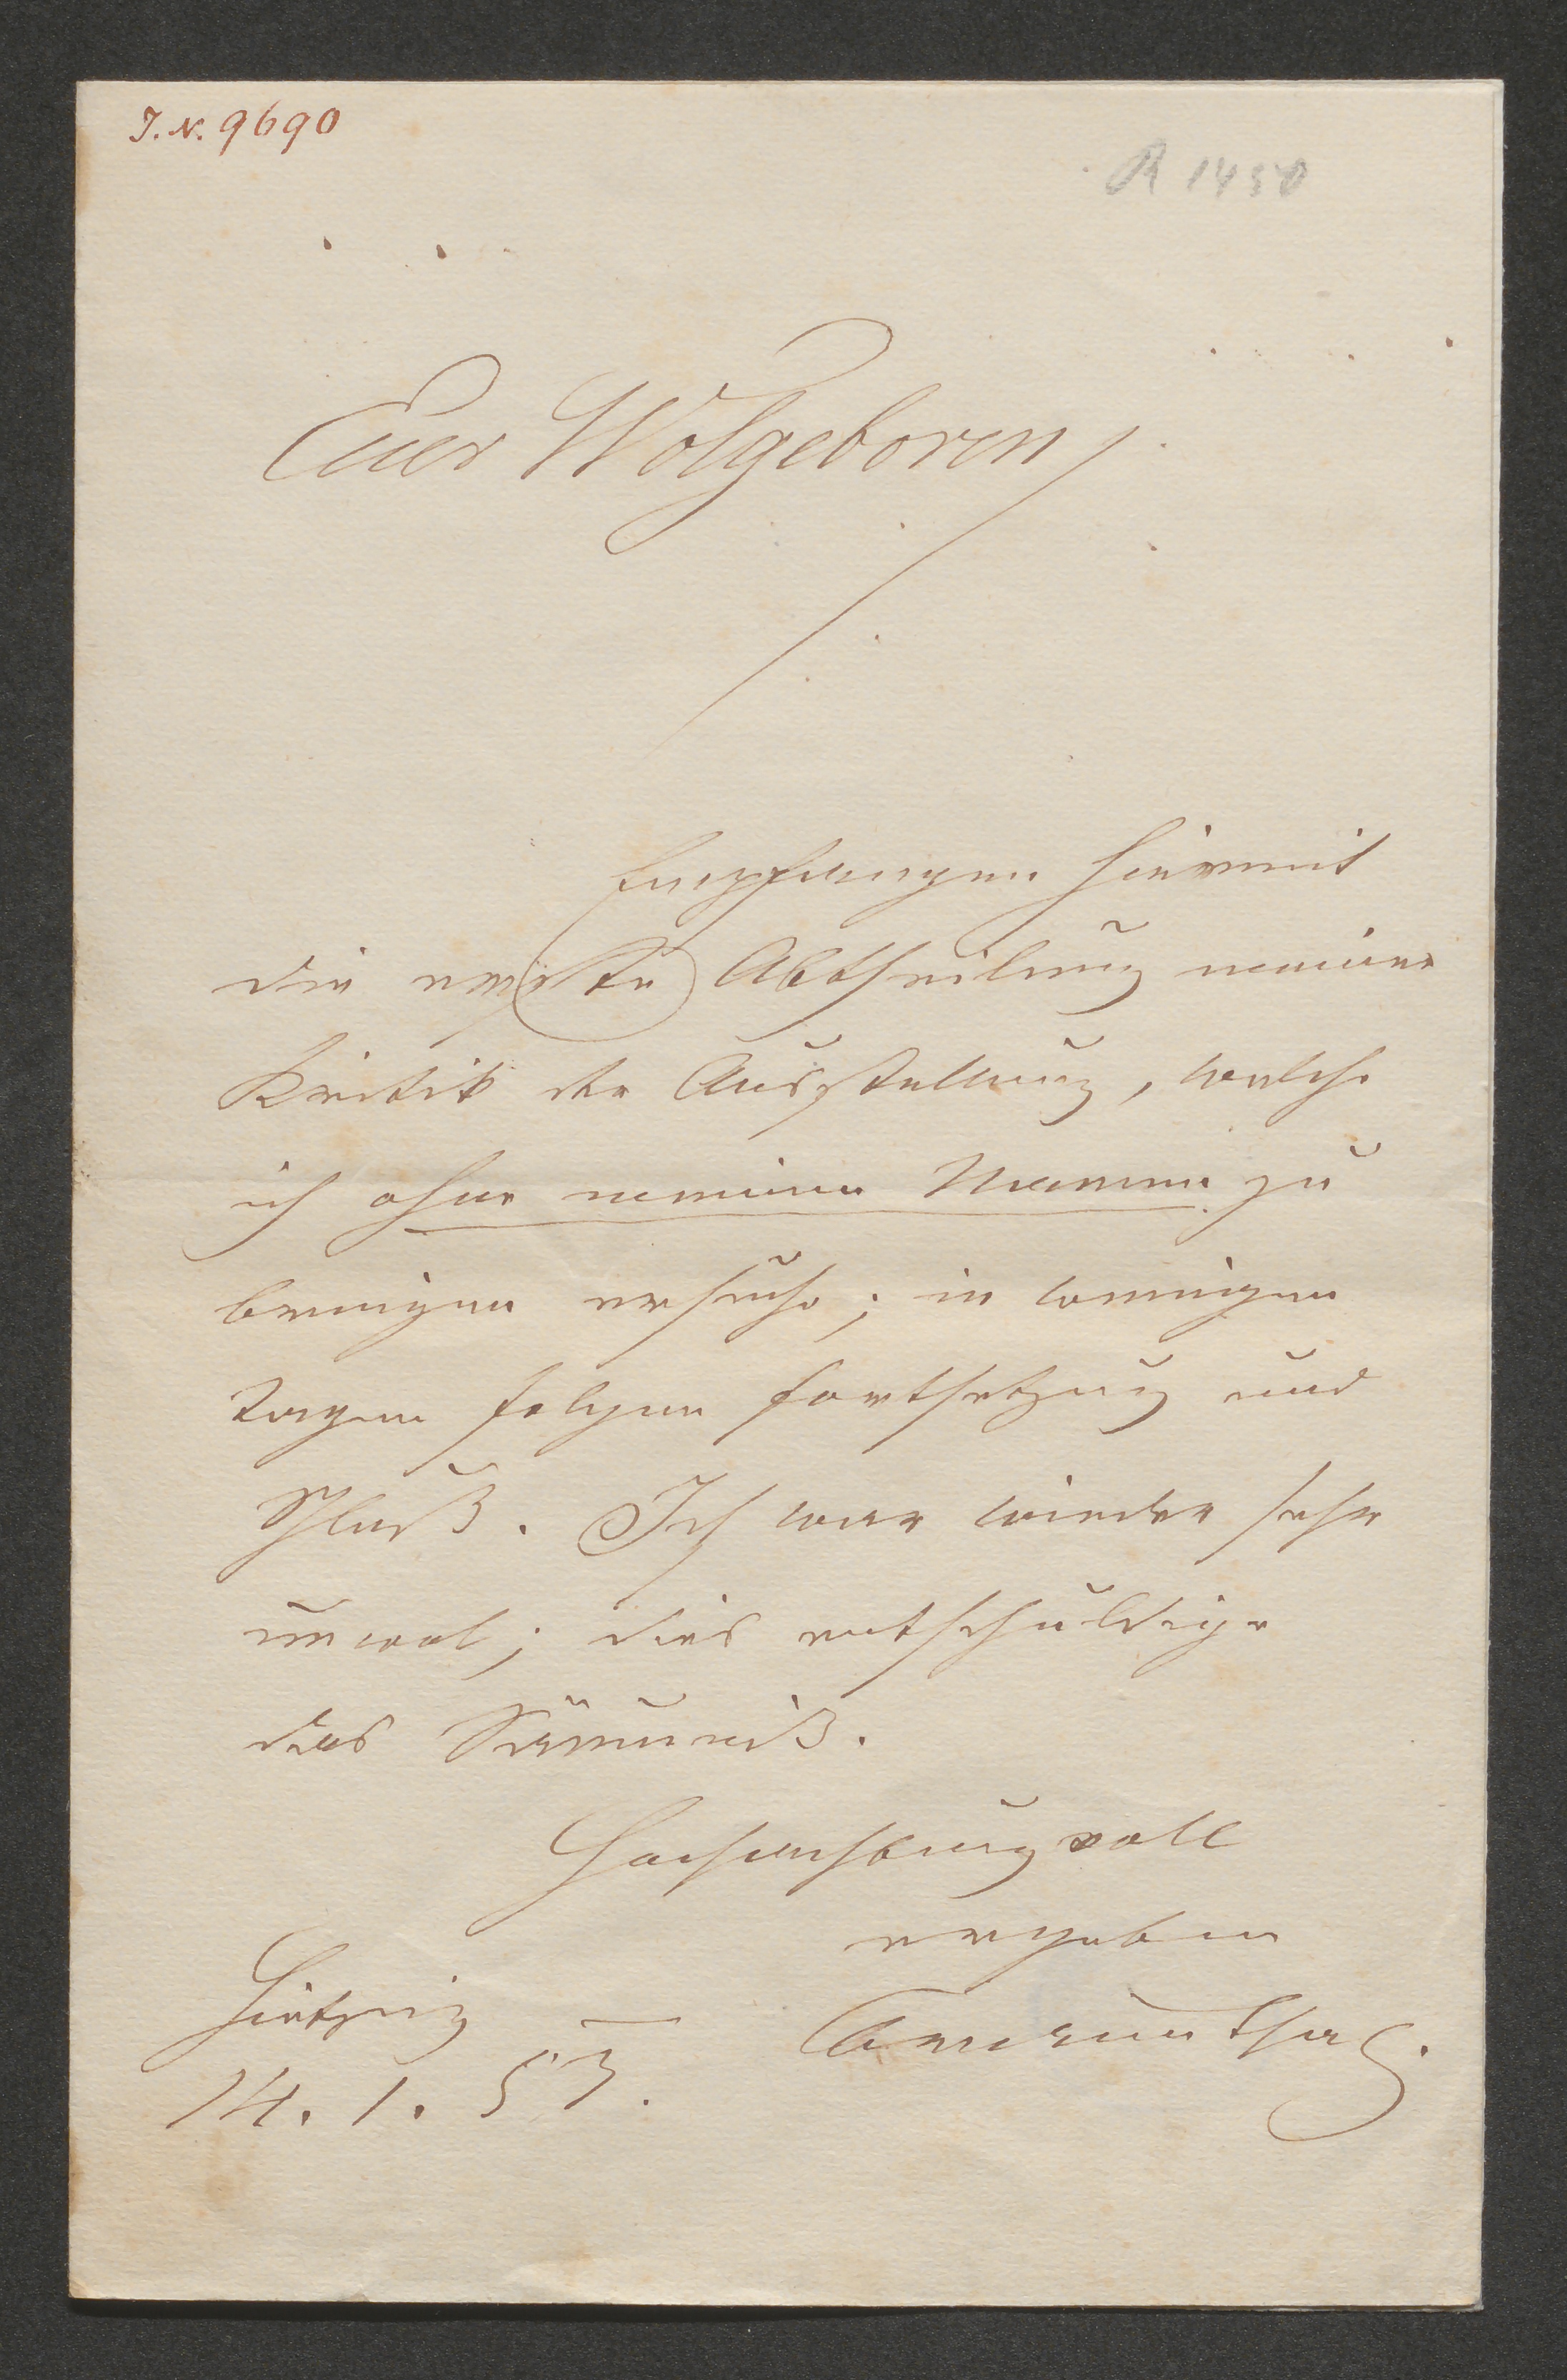 I. N. 9690
R 1450
Euer Wolgeboren,
Empfangen hiermit
die erste Abtheilung meiner
Kritik der Ausstellung, welche
ich ohne meinen Namen zu
bringen ersuche; in wenigen
Tagen folgen Fortsetzung und
Schluß. Ich war wieder sehr
unwol; dies entschuldige
das Säumniß.
Hochachtungsvoll
ergeben
Hietzing
14. 1. 53.